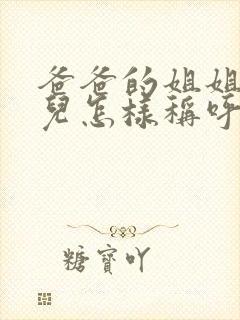 爸爸的姐姐
兒怎樣稱呼
糖寶吖